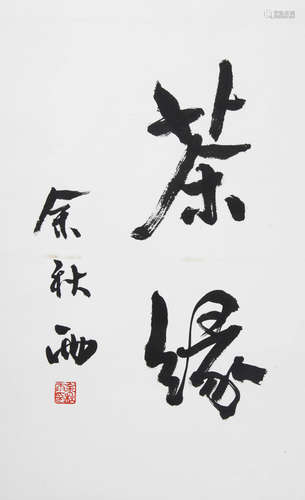 茶缘
余秋雨